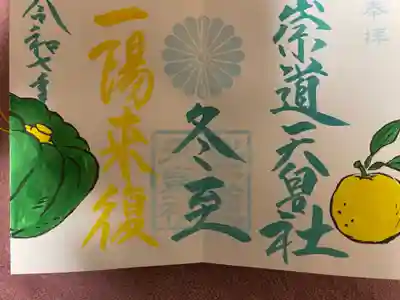 奉拝
崇道天皇社
冬至
一陽来復
令和七年